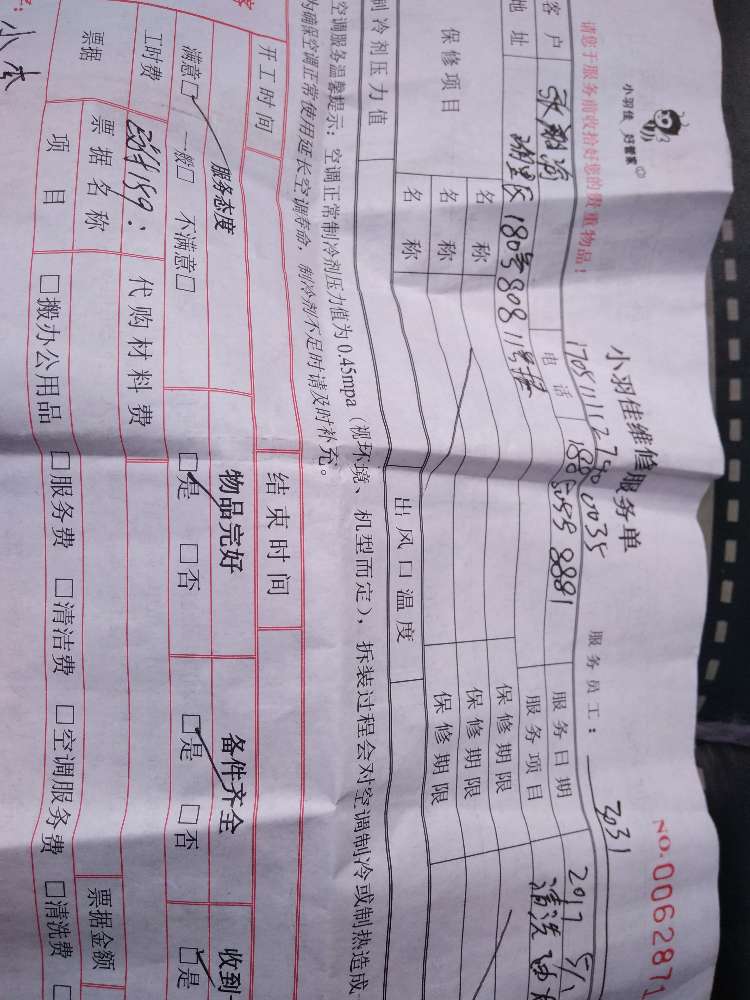 小羽佳 好管家
NO.0062871
请您于服务前收拾好您的贵重物品!
小羽佳维修服务单
服务员工: 3031
170511112740035
客户 电话 18650558881 服务日期 2017 5/1
地址 180号808 服务项目 清洗
保修项目 名称 保修期限
名称 保修期限
名称 保修期限
制冷剂压力值 出风口温度
空调服务温馨提示: 空调正常制冷剂压力值为0.45mpa(视环境、机型而定),拆装过程会对空调制冷或制热造成
为确保空调正常使用延长空调寿命,制冷剂不足时请及时补充。
开工时间 结束时间
服务态度 物品完好 备件齐全 收到
满意□ 一般□ 不满意□ □是 □否 □是 □否 □是
工时费 代购材料费
票据 票据名称 票据金额
项目 □搬办公用品 □服务费 □清洁费 □空调服务费 □清洗费